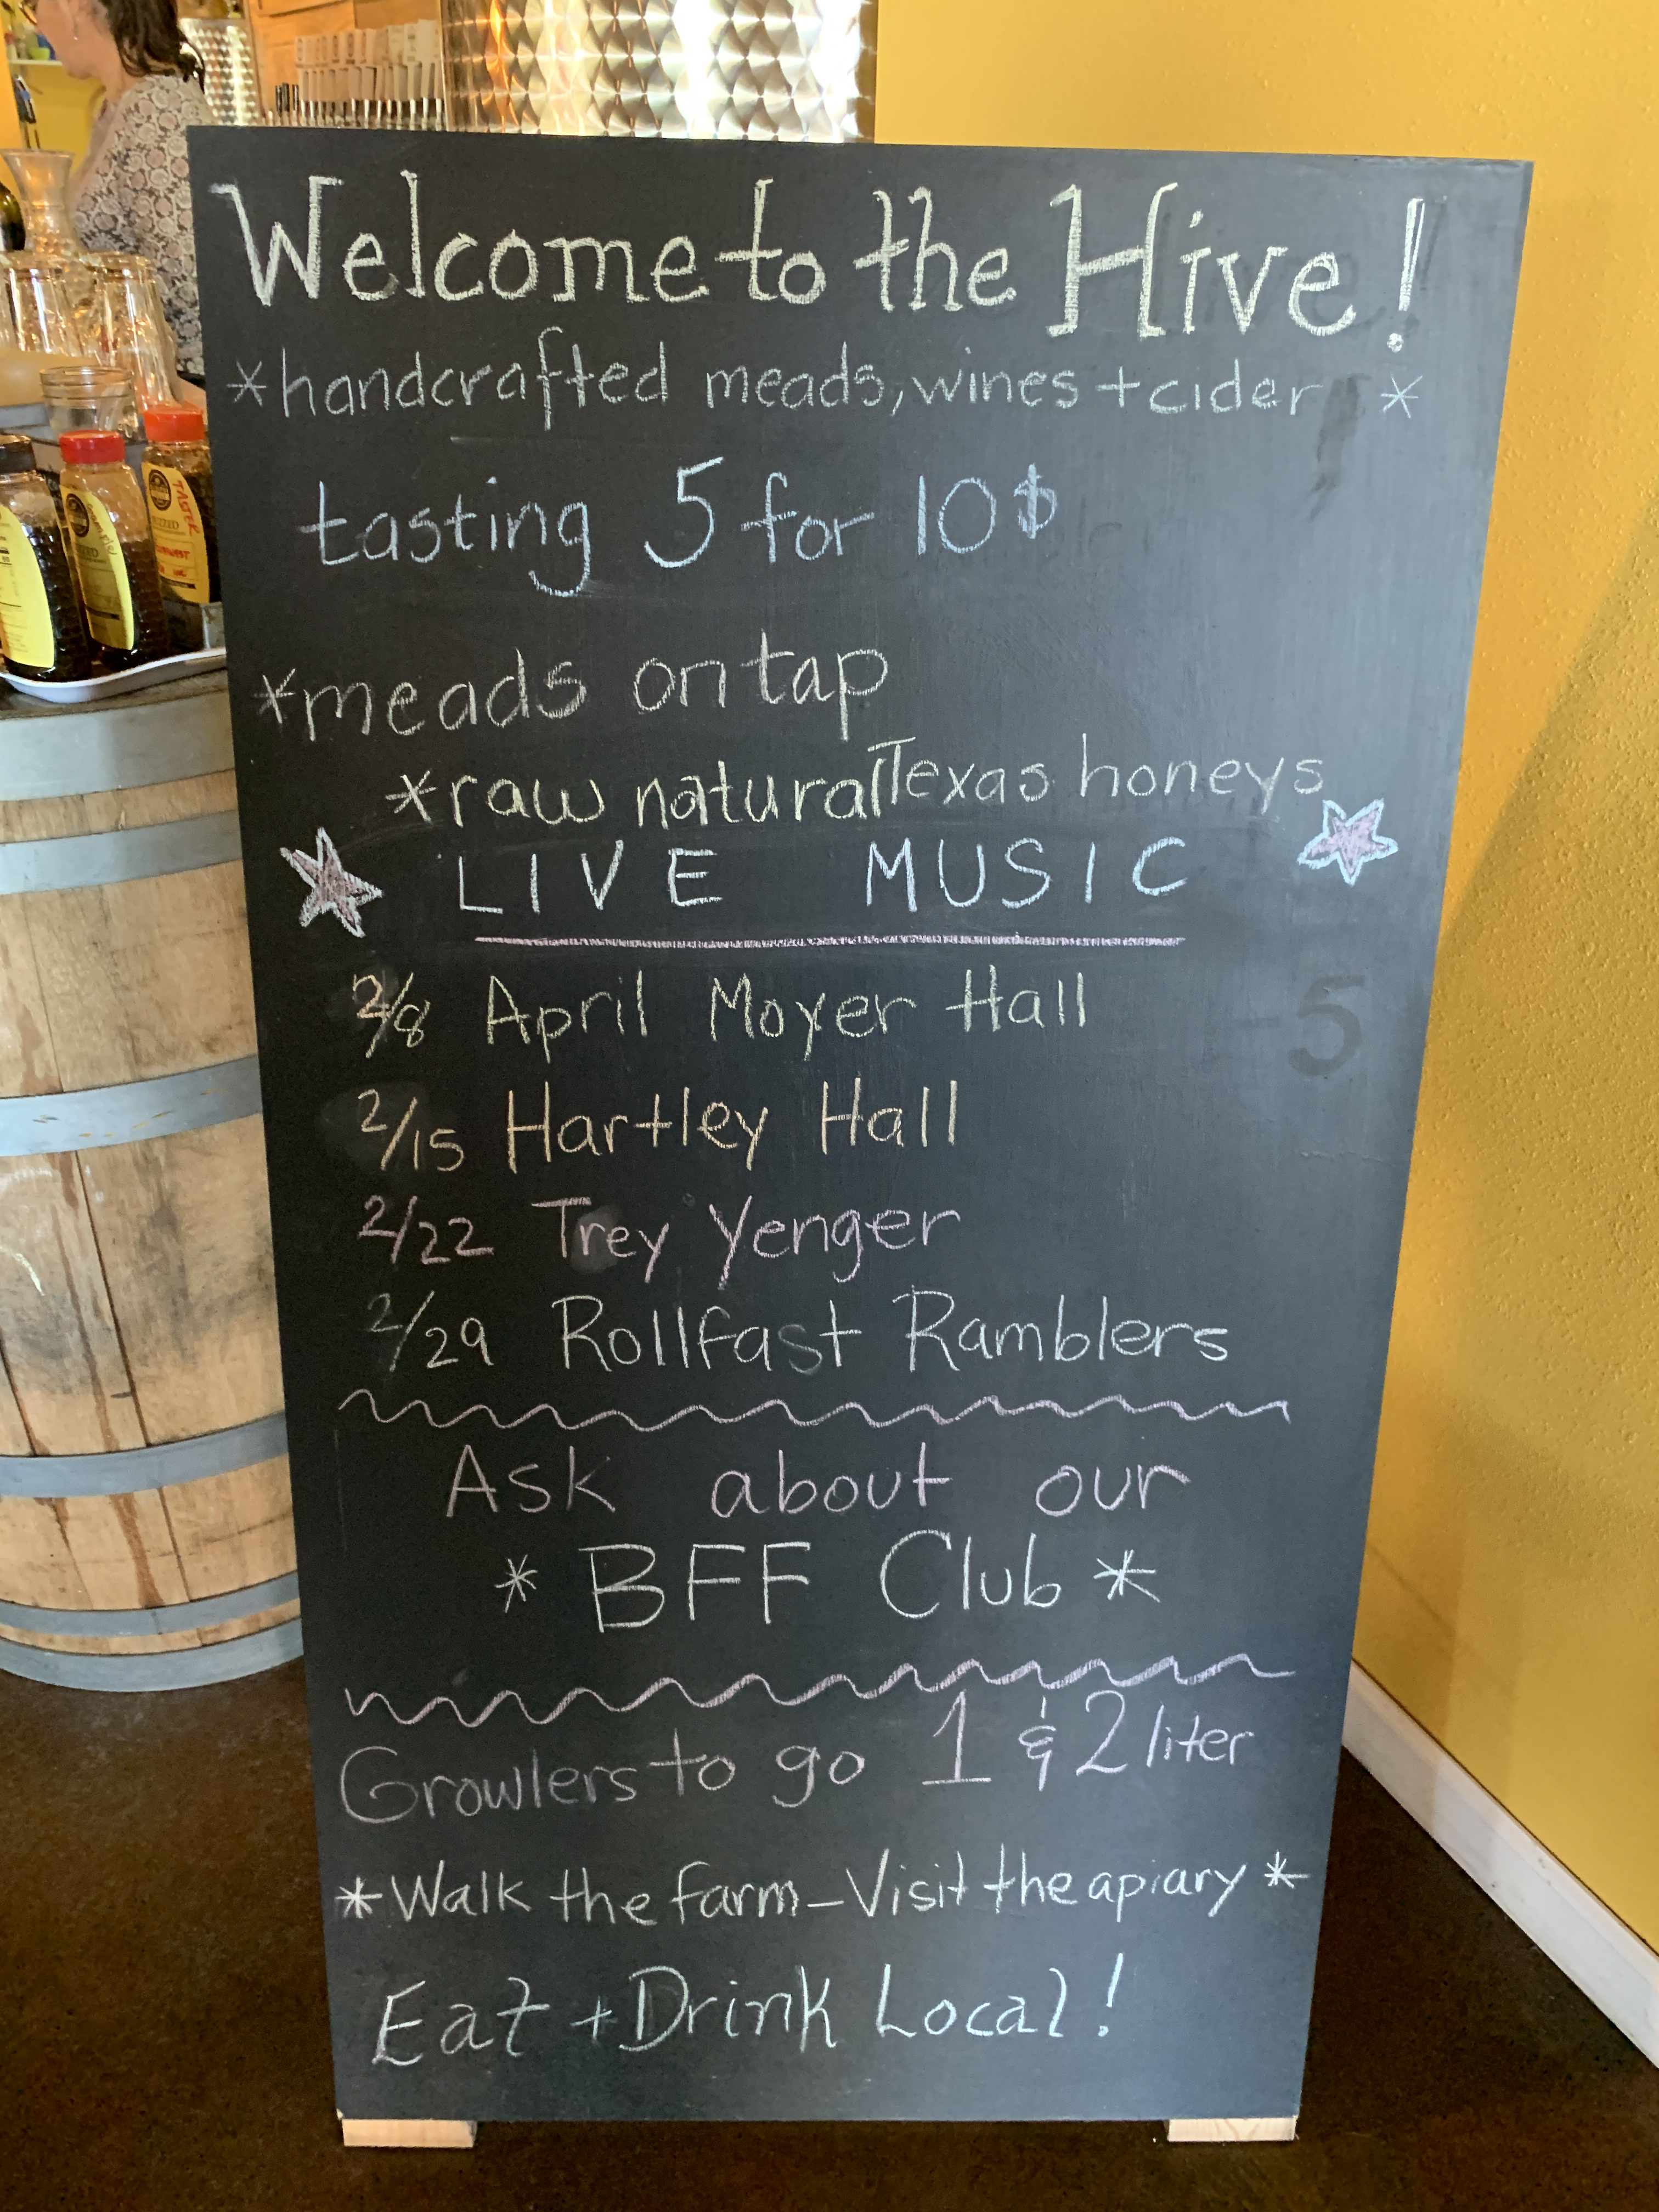 Welcome to the Hive!
*handcrafted meads, wines + cider *
tasting 5 for 10$
*meads on tap
*raw natural Texas honeys
LIVE MUSIC
2/8 April Moyer Hall
2/15 Hartley Hall
2/22 Trey Yenger
2/29 Rollfast Ramblers
Ask about our
* BFF Club *
Growlers to go 1 & 2 liter
*Walk the farm - Visit the apiary *
Eat + Drink Local!
5
TASTER